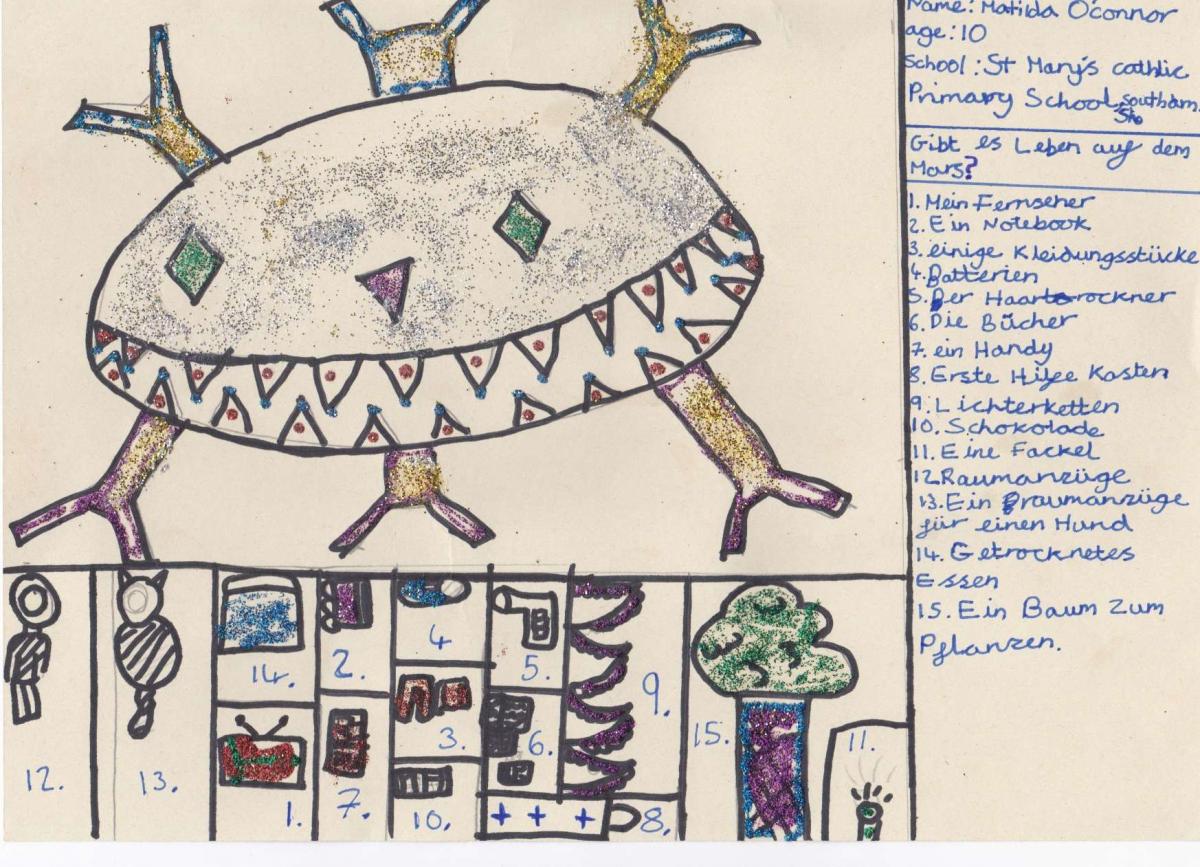 Name: Matilda O'connor
age: 10
School: St Mary's cathlic
Primary School, Southam
Gibt es Leben auf dem
Mars?
1. Mein Fernseher
2. Ein Notebook
3. einige Kleidungsstücke
4. Batterien
5. Der Haartrockner
6. Die Bücher
7. ein Handy
8. Erste Hilfe Kasten
9. Lichterketten
10. Schokolade
11. Eine Fackel
12. Raumanzüge
13. Ein raumanzüge
für einen Hund
14. Getrocknetes
Essen
15. Ein Baum zum
Pflanzen.
12.
13.
14.
1.
2.
7.
4
3.
10.
5.
6.
9.
8.
15.
11.